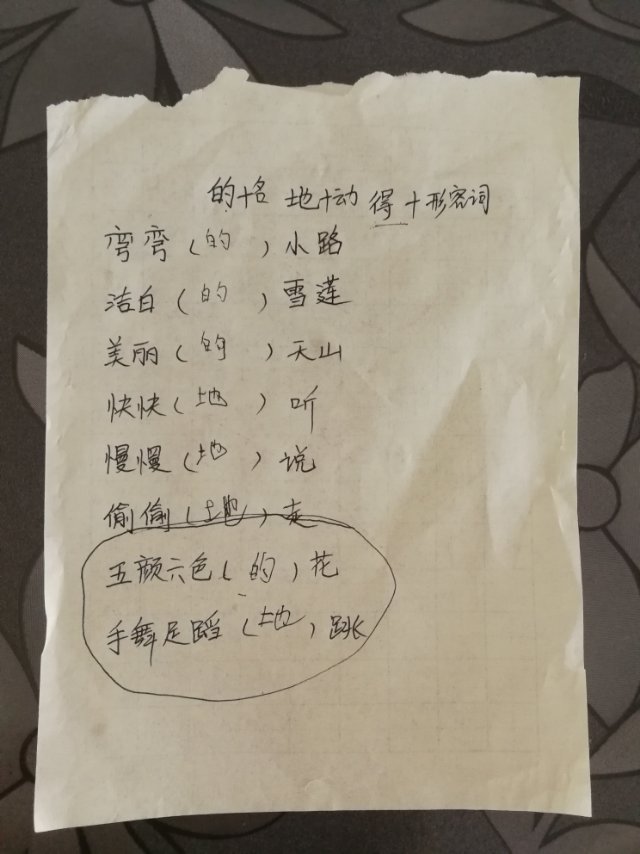 的+名 地+动 得+形容词
弯弯(的)小路
洁白(的)雪莲
美丽(的)天山
快快(地)听
慢慢(地)说
偷偷(地)走
五颜六色(的)花
手舞足蹈(地)跳